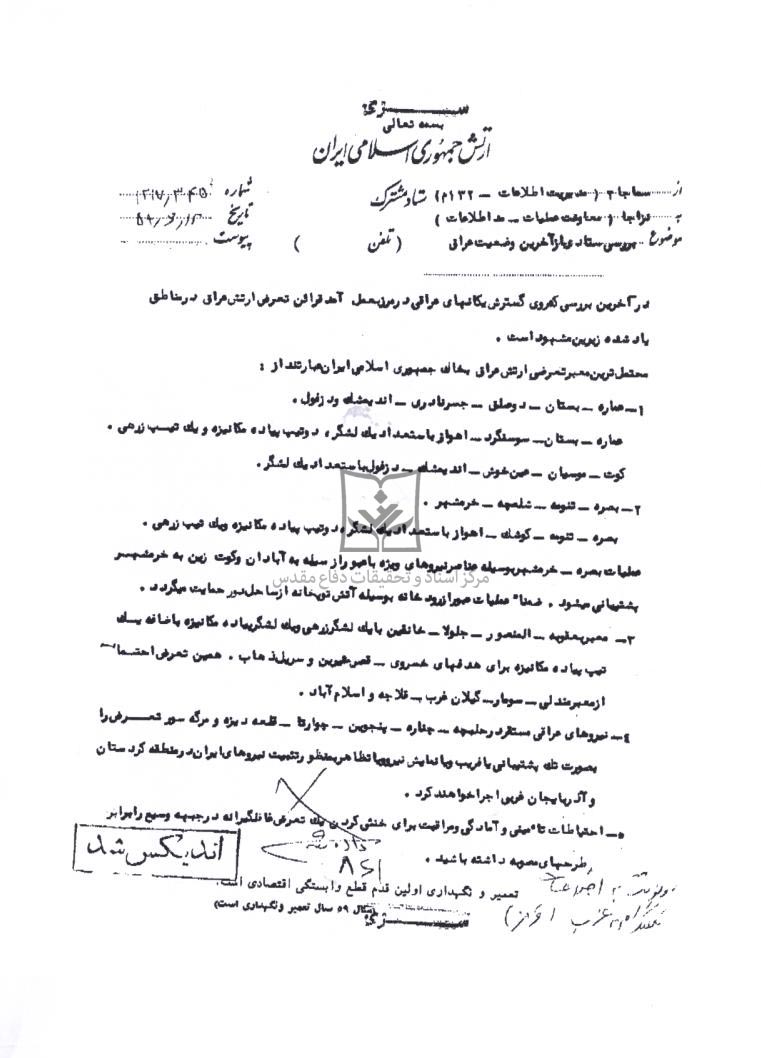 سری
بسمه تعالی
ارتش جمهوری اسلامی ایران
از سماجا۲ (مدیریت اطلاعات – ۱۳۲م) ستاد مشترک
شماره
به نزاجا (معاونت عملیات – مد اطلاعات)
تاریخ
موضوع بررسی ستادی از آخرین وضعیت عراق (تلفن )
پیوست
در آخرین بررسی که روی گسترش یکانهای عراقی در مرز بعمل آمد قرائن تعرض ارتش عراق در مناطق
یاد شده زیرین مشهود است .
محتمل ترین معبر تعرضی ارتش عراق بخاک جمهوری اسلامی ایران عبارتند از :
۱– عماره – بستان – دوسلق – جسر نادری – اندیمشک و دزفول .
عماره – بستان – سوسنگرد – اهواز با استعداد یک لشگر ، دو تیپ پیاده مکانیزه و یک تیپ زرهی .
کوت – موسیان – عین خوش – اندیمشک – دزفول با استعداد یک لشگر .
۲– بصره – تنومه – شلمچه – خرمشهر .
بصره – تنومه – کوشک – اهواز با استعداد یک لشگر ، دو تیپ پیاده مکانیزه و یک تیپ زرهی .
عملیات بصره – خرمشهر بوسیله عناصر نیروهای ویژه با عبور از سیله به آبادان و کوت زین به خرمشهر
پشتیبانی میشود . ضمنا" عملیات عبور از رودخانه بوسیله آتش توپخانه از ساحل دور حمایت میگردد .
۳– معبر بعقوبه – المنصور – جلولا – خانقین با یک لشگر زرهی و یک لشگر پیاده مکانیزه باضافه یک
تیپ پیاده مکانیزه برای هدفهای خسروی – قصرشیرین و سرپل ذهاب . همین تعرض احتمالا"
از معبر مندلی – سومار – گیلان غرب – قلاجه و اسلام آباد .
۴– نیروهای عراقی مستقر در حلبچه – چناره – پنجوین – چوارتا – قلعه دیزه و مرگه سور تعرض را
بصورت تک پشتیبانی یا فریب و یا نمایش نیرو و یا تظاهر بمنظور تثبیت نیروهای ایران در منطقه کردستان
و آذربایجان غربی اجرا خواهند کرد .
۵– احتیاطات تامینی و آمادگی و مراقبت برای خنثی کردن یک تعرض غافلگیرانه در جبهه وسیع را برابر
طرحهای مصوبه داشته باشید .
اندیکس شد
داده شد
تعمیر و نگهداری اولین قدم قطع وابستگی اقتصادی است.
(سال ۵۹ سال تعمیر و نگهداری است)
سری
مرکز اسناد و تحقیقات دفاع مقدس